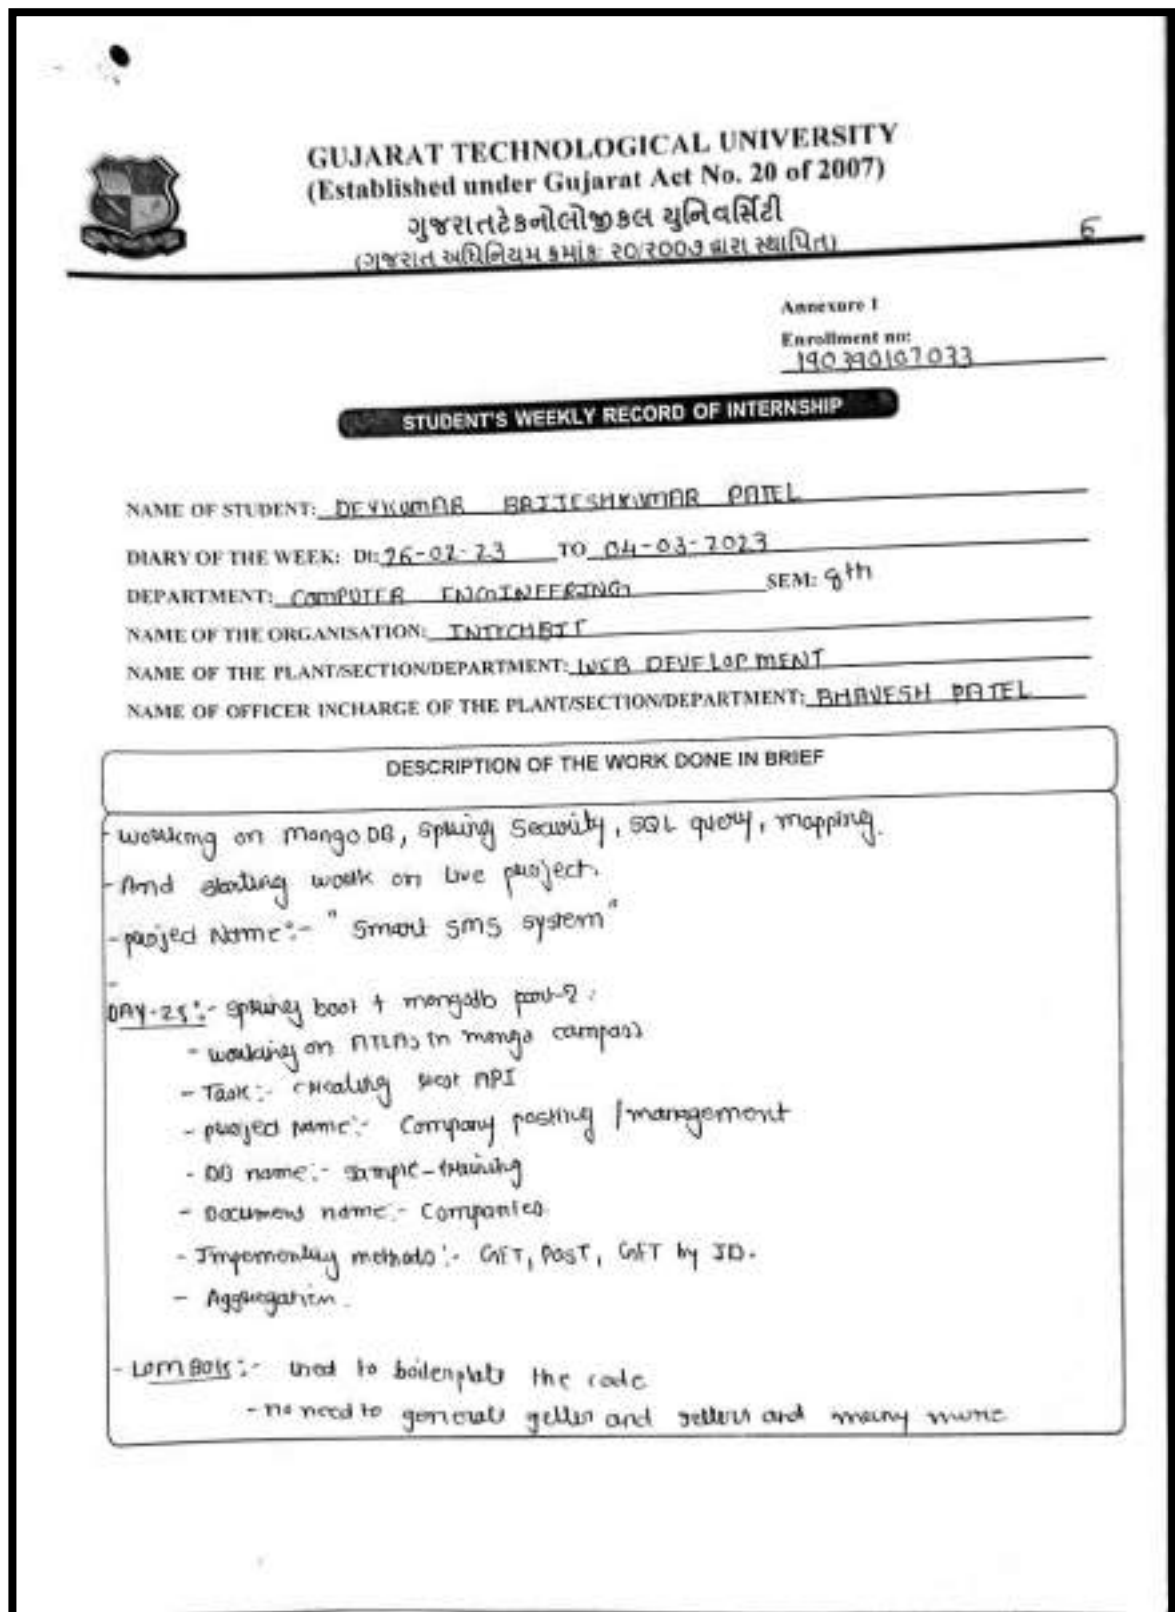 GUJARAT TECHNOLOGICAL UNIVERSITY
(Established under Gujarat Act No. 20 of 2007)
ગુજરાતટેકનોલોજીકલ યુનિવર્સિટી
(ગુજરાત અધિનિયમ ક્રમાંક: ૨૦/૨૦૦૭ દ્વારા સ્થાપિત)
Annexure 1
Enrollment no:
190390107033
STUDENT'S WEEKLY RECORD OF INTERNSHIP
NAME OF STUDENT: DEVKUMAR BRIJESHKUMAR PATEL
DIARY OF THE WEEK: Dt: 26-02-23 TO 04-03-2023
DEPARTMENT: COMPUTER ENGINEERING SEM: 8th
NAME OF THE ORGANISATION:
NAME OF THE PLANT/SECTION/DEPARTMENT: WEB DEVELOPMENT
NAME OF OFFICER INCHARGE OF THE PLANT/SECTION/DEPARTMENT: BHAVESH PATEL
DESCRIPTION OF THE WORK DONE IN BRIEF
- working on MongoDB, Spring Security, SQL query, mapping.
- And starting work on Live project.
- project Name:- "Smart SMS system"
DAY-25:- Spring boot + mongodb part-2.
- working on ATLAS in mongo campass
- Task:- creating rest API
- project name:- Company posting / management
- DB name:- sample-training
- Document name:- Companies
- methods:- GET, POST, GET by ID.
- Aggregation.
- LOMBOK:- used to boilerplate the code
- no need to generate getter and setters and many more